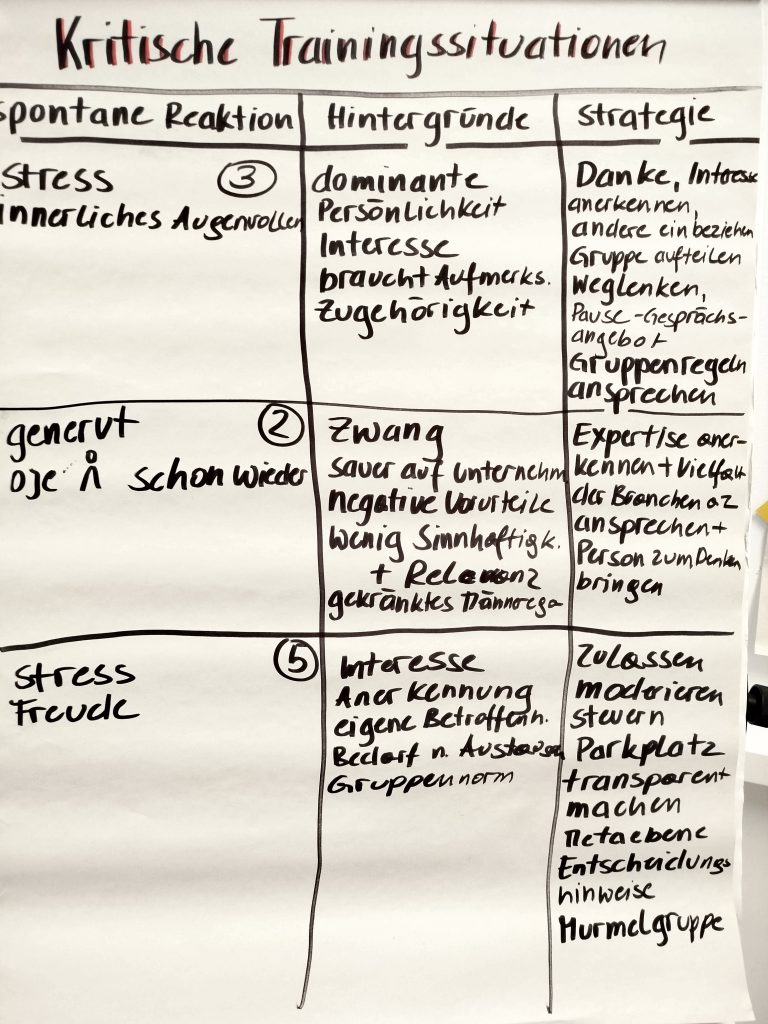 Kritische Trainingssituationen
spontane Reaktion
Hintergründe
Strategie
Stress ③
innerliches Augenrollen
dominante
Persönlichkeit
Interesse
braucht Aufmerks.
Zugehörigkeit
Danke, Interesse
anerkennen,
andere einbeziehen
Gruppe aufteilen
Weglenken,
Pause-Gesprächs-
angebot
Gruppenregeln
ansprechen
genervt ②
oje schon wieder
Zwang
sauer auf Unternehm
negative Vorurteile
Wenig Sinnhaftigk.
+ Relevanz
gekränktes Männerego
Expertise aner-
kennen + Vielfalt
der Branchen
ansprechen +
Person zum Denken
bringen
Stress ⑤
Freude
Interesse
Anerkennung
eigene Betroffenh.
Bedarf n. Austausch
Gruppennorm
Zulassen
moderieren
steuern
Parkplatz
transparent
machen
Metaebene
Entscheidungs
hinweise
Murmelgruppe